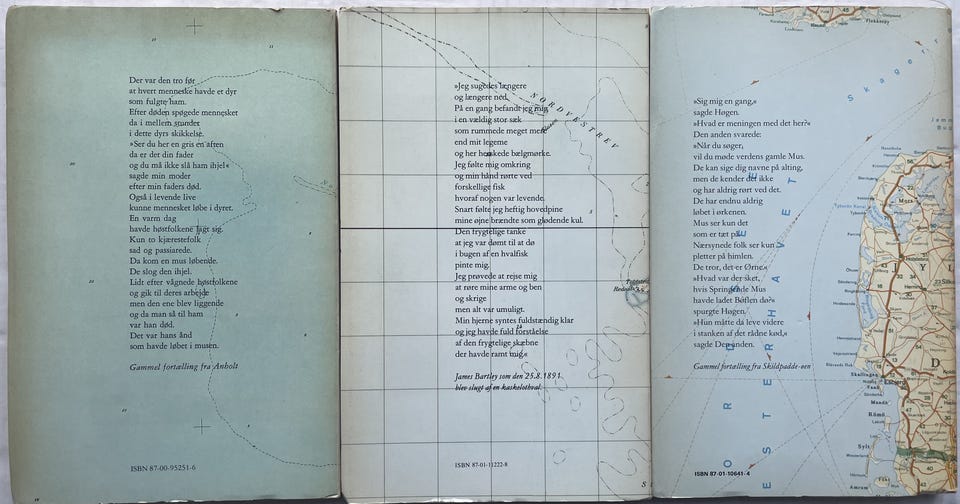 Der var den tro før
at hvert menneske havde et dyr
som fulgte ham.
Efter døden spøgede mennesket
da i mellem stunder
i dette dyrs skikkelse.
»Ser du her en gris en aften
da er det din fader
og du må ikke slå ham ihjel«
sagde min moder
efter min faders død.
Også i levende live
kunne mennesket løbe i dyret.
En varm dag
havde høstfolkene lagt sig.
Kun to kjærestefolk
sad og passiarede.
Da kom en mus løbende.
De slog den ihjel.
Lidt efter vågnede høstfolkene
og gik til deres arbejde
men den ene blev liggende
og da man så til ham
var han død.
Det var hans ånd
som havde løbet i musen.
Gammel fortælling fra Anholt
ISBN 87-00-95251-6
»Jeg sugedes længere
og længere ned.
På en gang befandt jeg mig
i en vældig stor sæk
som rummede meget mere
end mit legeme
og her herskede bælgmørke.
Jeg følte mig omkring
og min hånd rørte ved
forskellige fisk
hvoraf nogen var levende.
Snart følte jeg heftig hovedpine
mine øjne brændte som glødende kul.
Den frygtelige tanke
at jeg var dømt til at dø
i bugen af en hvalfisk
pinte mig.
Jeg prøvede at rejse mig
at røre mine arme og ben
og skrige
men alt var umuligt.
Min hjerne syntes fuldstændig klar
og jeg havde fuld forståelse
af den frygtelige skæbne
der havde ramt mig.«
James Bartley som den 25.8.1891
blev slugt af en kaskelothval.
NORDVESTREV
ISBN 87-01-11222-8
»Sig mig en gang,«
sagde Høgen.
»Hvad er meningen med det her?«
Den anden svarede:
»Når du søger,
vil du møde verdens gamle Mus.
De kan sige dig navne på alting,
men de kender det ikke
og har aldrig rørt ved det.
De har endnu aldrig
løbet i ørkenen.
Mus ser kun det
som er tæt på.
Nærsynede folk ser kun
pletter på himlen.
De tror, det er Ørne.«
»Hvad var der sket,
hvis Springende Mus
havde ladet Bøflen dø?«
spurgte Høgen.
»Hun måtte da leve videre
i stanken af det rådne kød,«
sagde Den anden.
Gammel fortælling fra Skildpadde-øen
ISBN 87-01-10641-4
Skagerr
VESTERHAVET
Flekkerøy
Thyborøn
Mors
Esbjerg
Skallingen
Fanø
Mandø
Römö
Sylt
Amrum
Föhr
JY
D